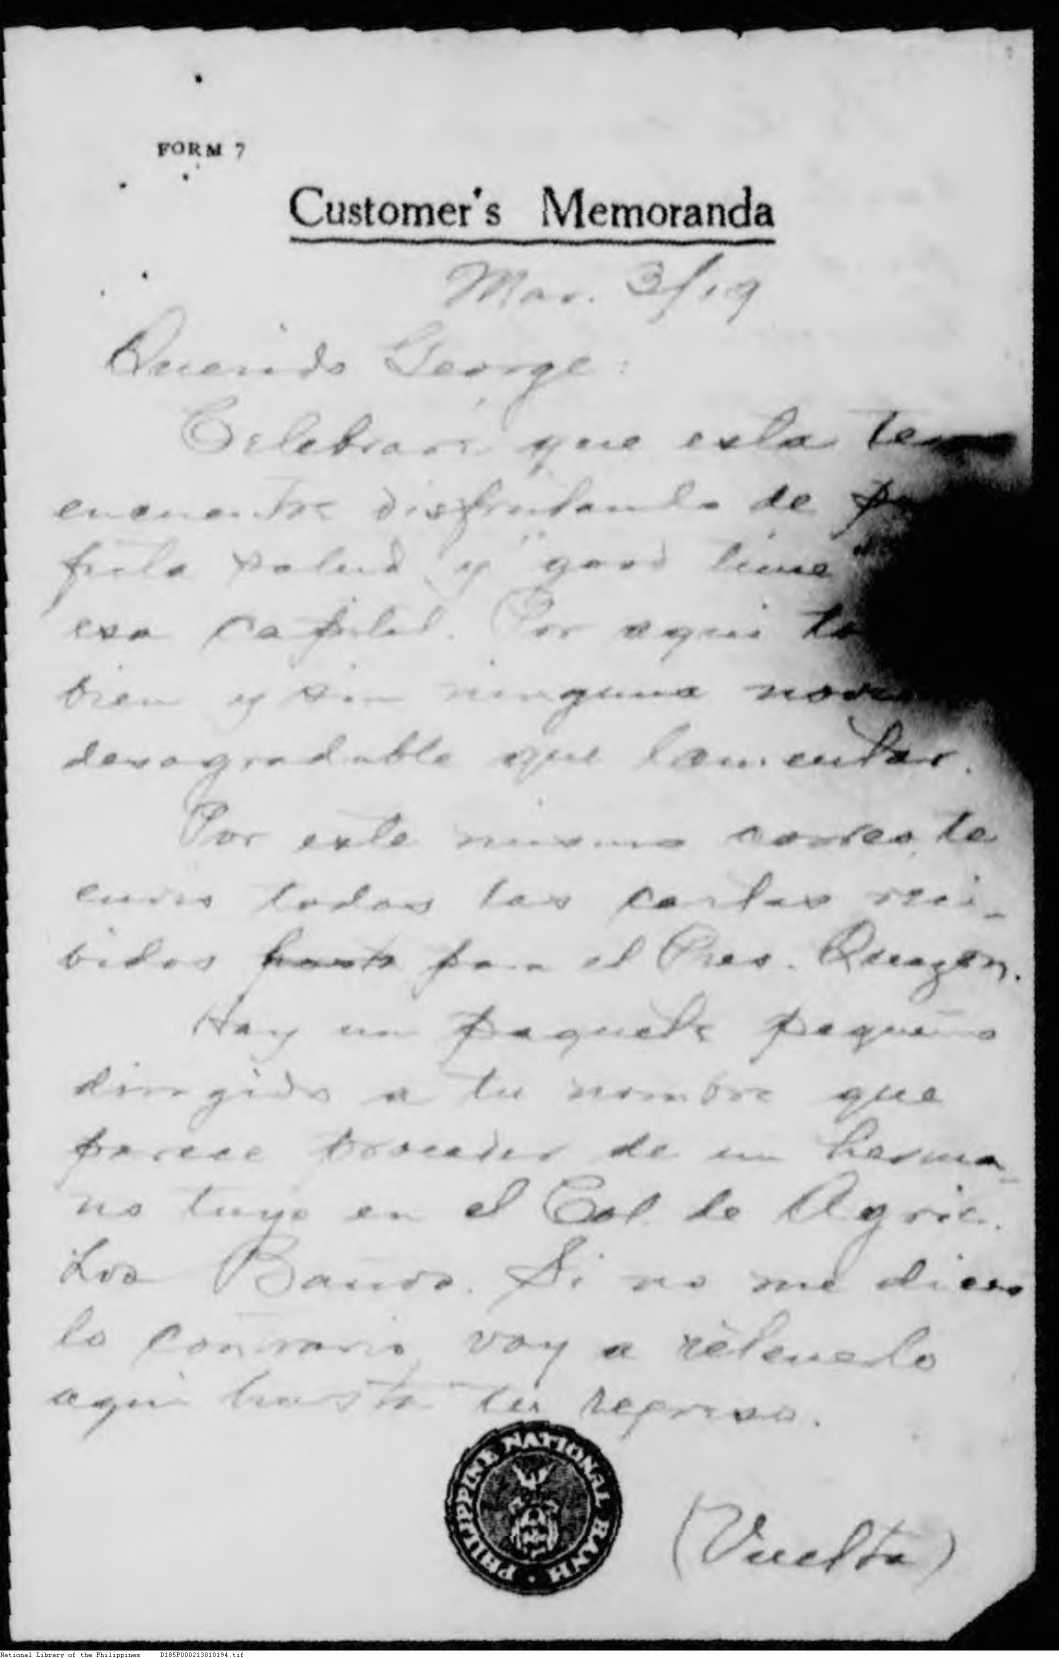 FORM 7
Customer's Memoranda
Mar. 3/19
Querido George:
Celebraré que esta te
encuentre disfrutando de
fecta salud y "good time"
esa capital. Por aqui
bien y sin ninguna
desagradable que lamentar.
Por este mismo correo te
envio todas las cartas reci-
bidas hasta para el Pres. Quezon.
Hay un paquete pequeño
dirigido a tu nombre que
parece proceder de un herma-
no tuyo en el Col. de Agric.
Los Baños. Si no me dices
lo contrario, voy a retenerlo
aqui hasta tu regreso.
PHILIPPINE NATIONAL BANK
(Vuelta)
National Library of the Philippines D185P000213810194.tif